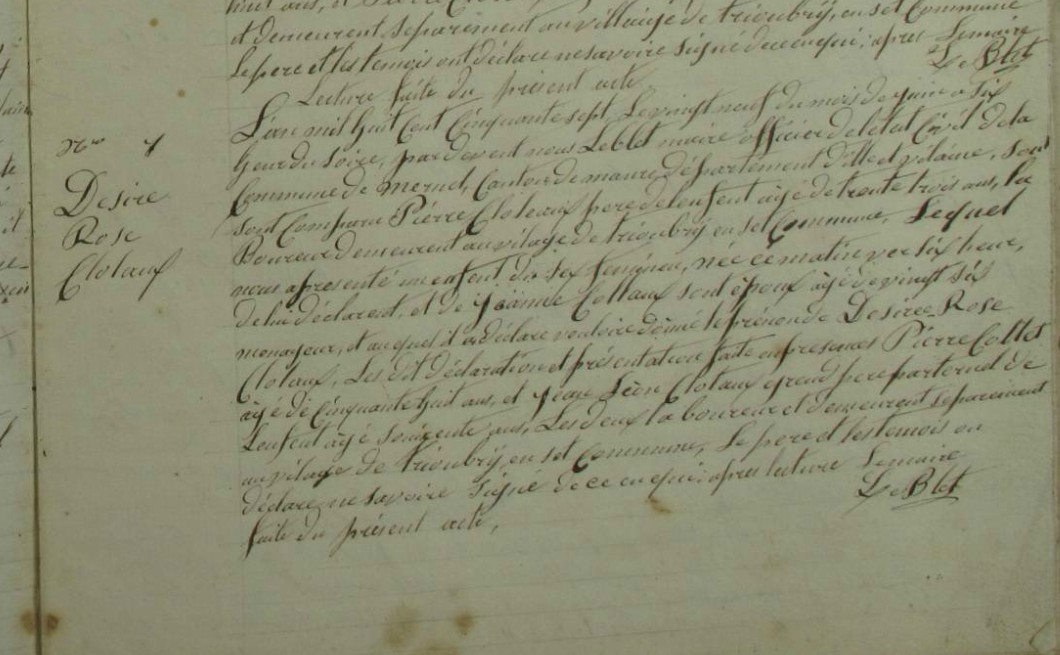 et demeurent separement au villaige de trioubry, en set Commune
Le pere et les temois ont déclare ne savoire Signé de ce en qui; apres Lemaire
Lecture faite du présent acte Le Blet
N° 7
Desire
Rose
Clotaux
L'an mil huit Cent Cinquante sept, Le vingt neuf du mois de juin a six
heur du Soire, par devent nous Leblet maire officier de letat Civil de la
Commune de mernel, Canton de maure département d'ille et vilaine, sont
sont Comparu Pierre Cloteaux pere de lenfent agé de trente trois ans, la
Boureur demeurent au vilage de trioubry en set Commune, Lequel
nous a présenté un enfent du sex feminin, née ce matin ver six heur,
de lui déclarent, et de Jeanne Collaux sont époux âgé de vingt six
menajeur, et auquel il a déclare vouloire donné le prénon de Desiree Rose
Clotaux, Les dit déclaration et présentation faite en presences Pierre Collet
âgé de Cinquante huit ans, et Jean Clotaux grand pere parternel de
Lenfent âgé soixente ans, Les deux la boureur et demeurent separement
au vilage de trioubry, en set Commune, Le pere et les temois on
déclare ne savoire signé de ce en qui; apres lecture Lemaire
faite du présent acte, Le Blet